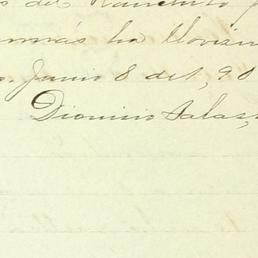 del Ranchito
más ha llovisn
Junio 8 del, 90
Dionisio Salas,